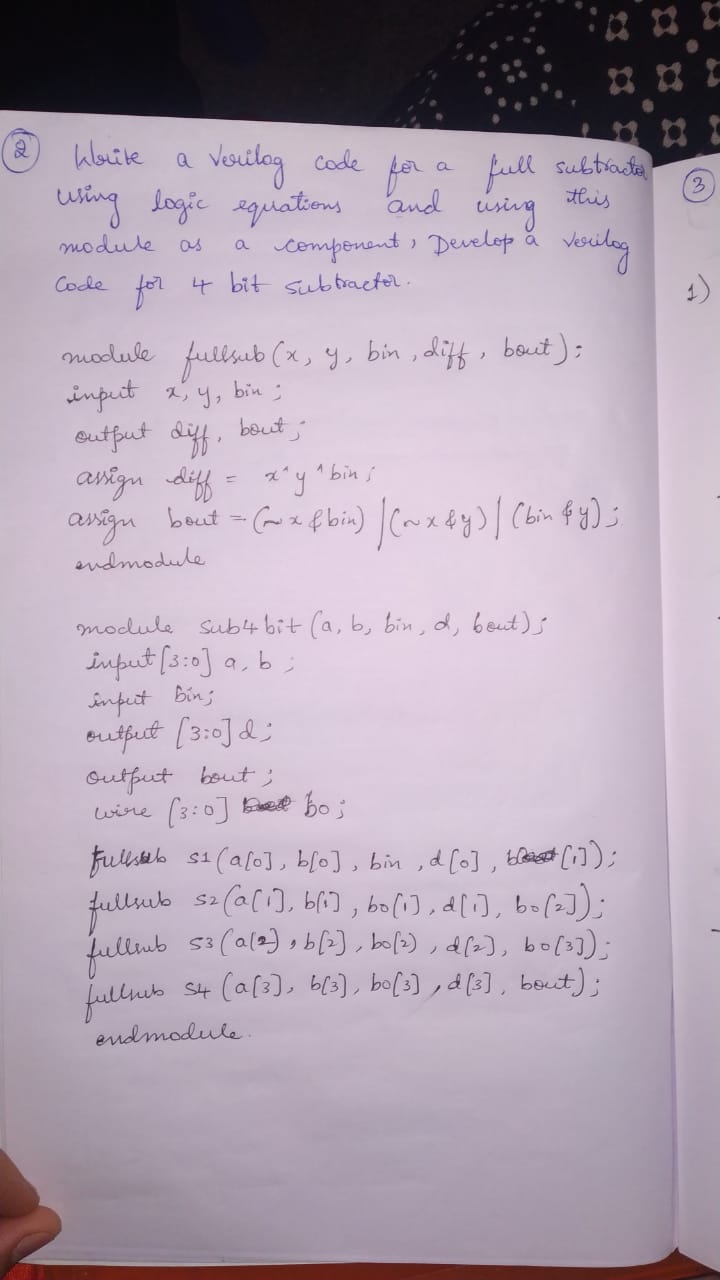 ② Write a Verilog code for a full subtractor
using logic equations and using this
module as a component, Develop a Verilog
Code for 4 bit subtractor.
module fullsub (x, y, bin, diff, bout);
input x, y, bin;
output diff, bout;
assign diff = x^y^bin;
assign bout = (~x & bin) | (~x & y) | (bin & y);
endmodule
module sub4bit (a, b, bin, d, bout);
input [3:0] a, b;
input bin;
output [3:0] d;
output bout;
wire [3:0] bo;
fullsub s1 (a[0], b[0], bin, d[0], b[1]);
fullsub s2 (a[1], b[1], bo[1], d[1], bo[2]);
fullsub s3 (a[2], b[2], bo[2), d[2], bo[3]);
fullsub s4 (a[3], b[3], bo[3], d[3], bout);
endmodule.
③
1)